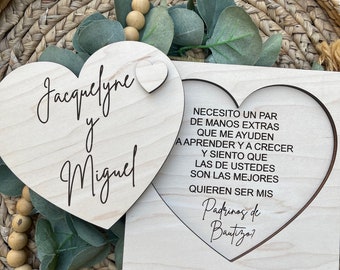 Jacquelyne
y
Miguel
NECESITO UN PAR
DE MANOS EXTRAS
QUE ME AYUDEN
A APRENDER Y A CRECER
Y SIENTO QUE
LAS DE USTEDES
SON LAS MEJORES
QUIEREN SER MIS
Padrinos de
Bautizo?